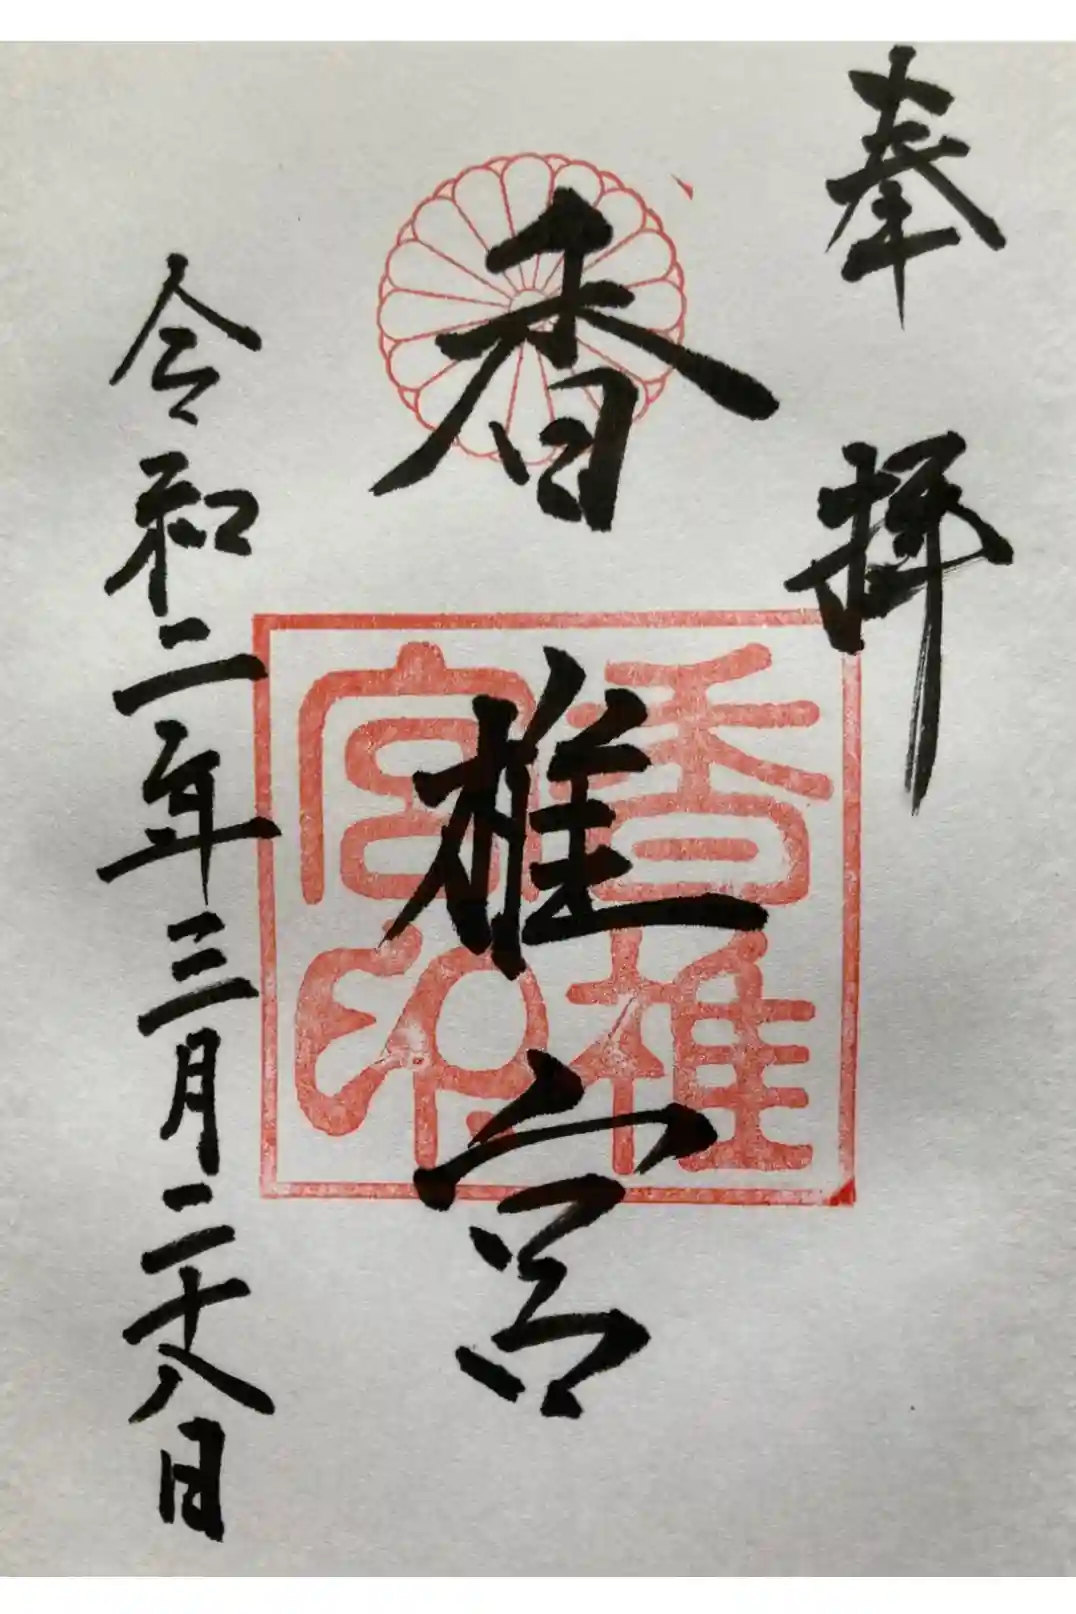 奉拝
香椎宮
香椎宮印
令和二年三月二十八日